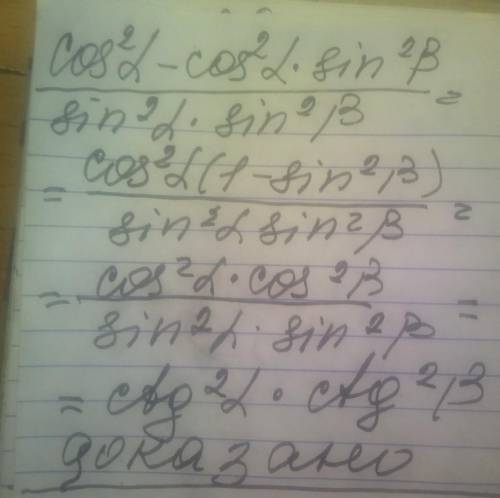 cos²α - cos²α · sin²β =
sin²α · sin²β
= cos²α (1 - sin²β) =
sin²α sin²β
= cos²α · cos²β =
sin²α · sin²β
= ctg²α · ctg²β
доказано